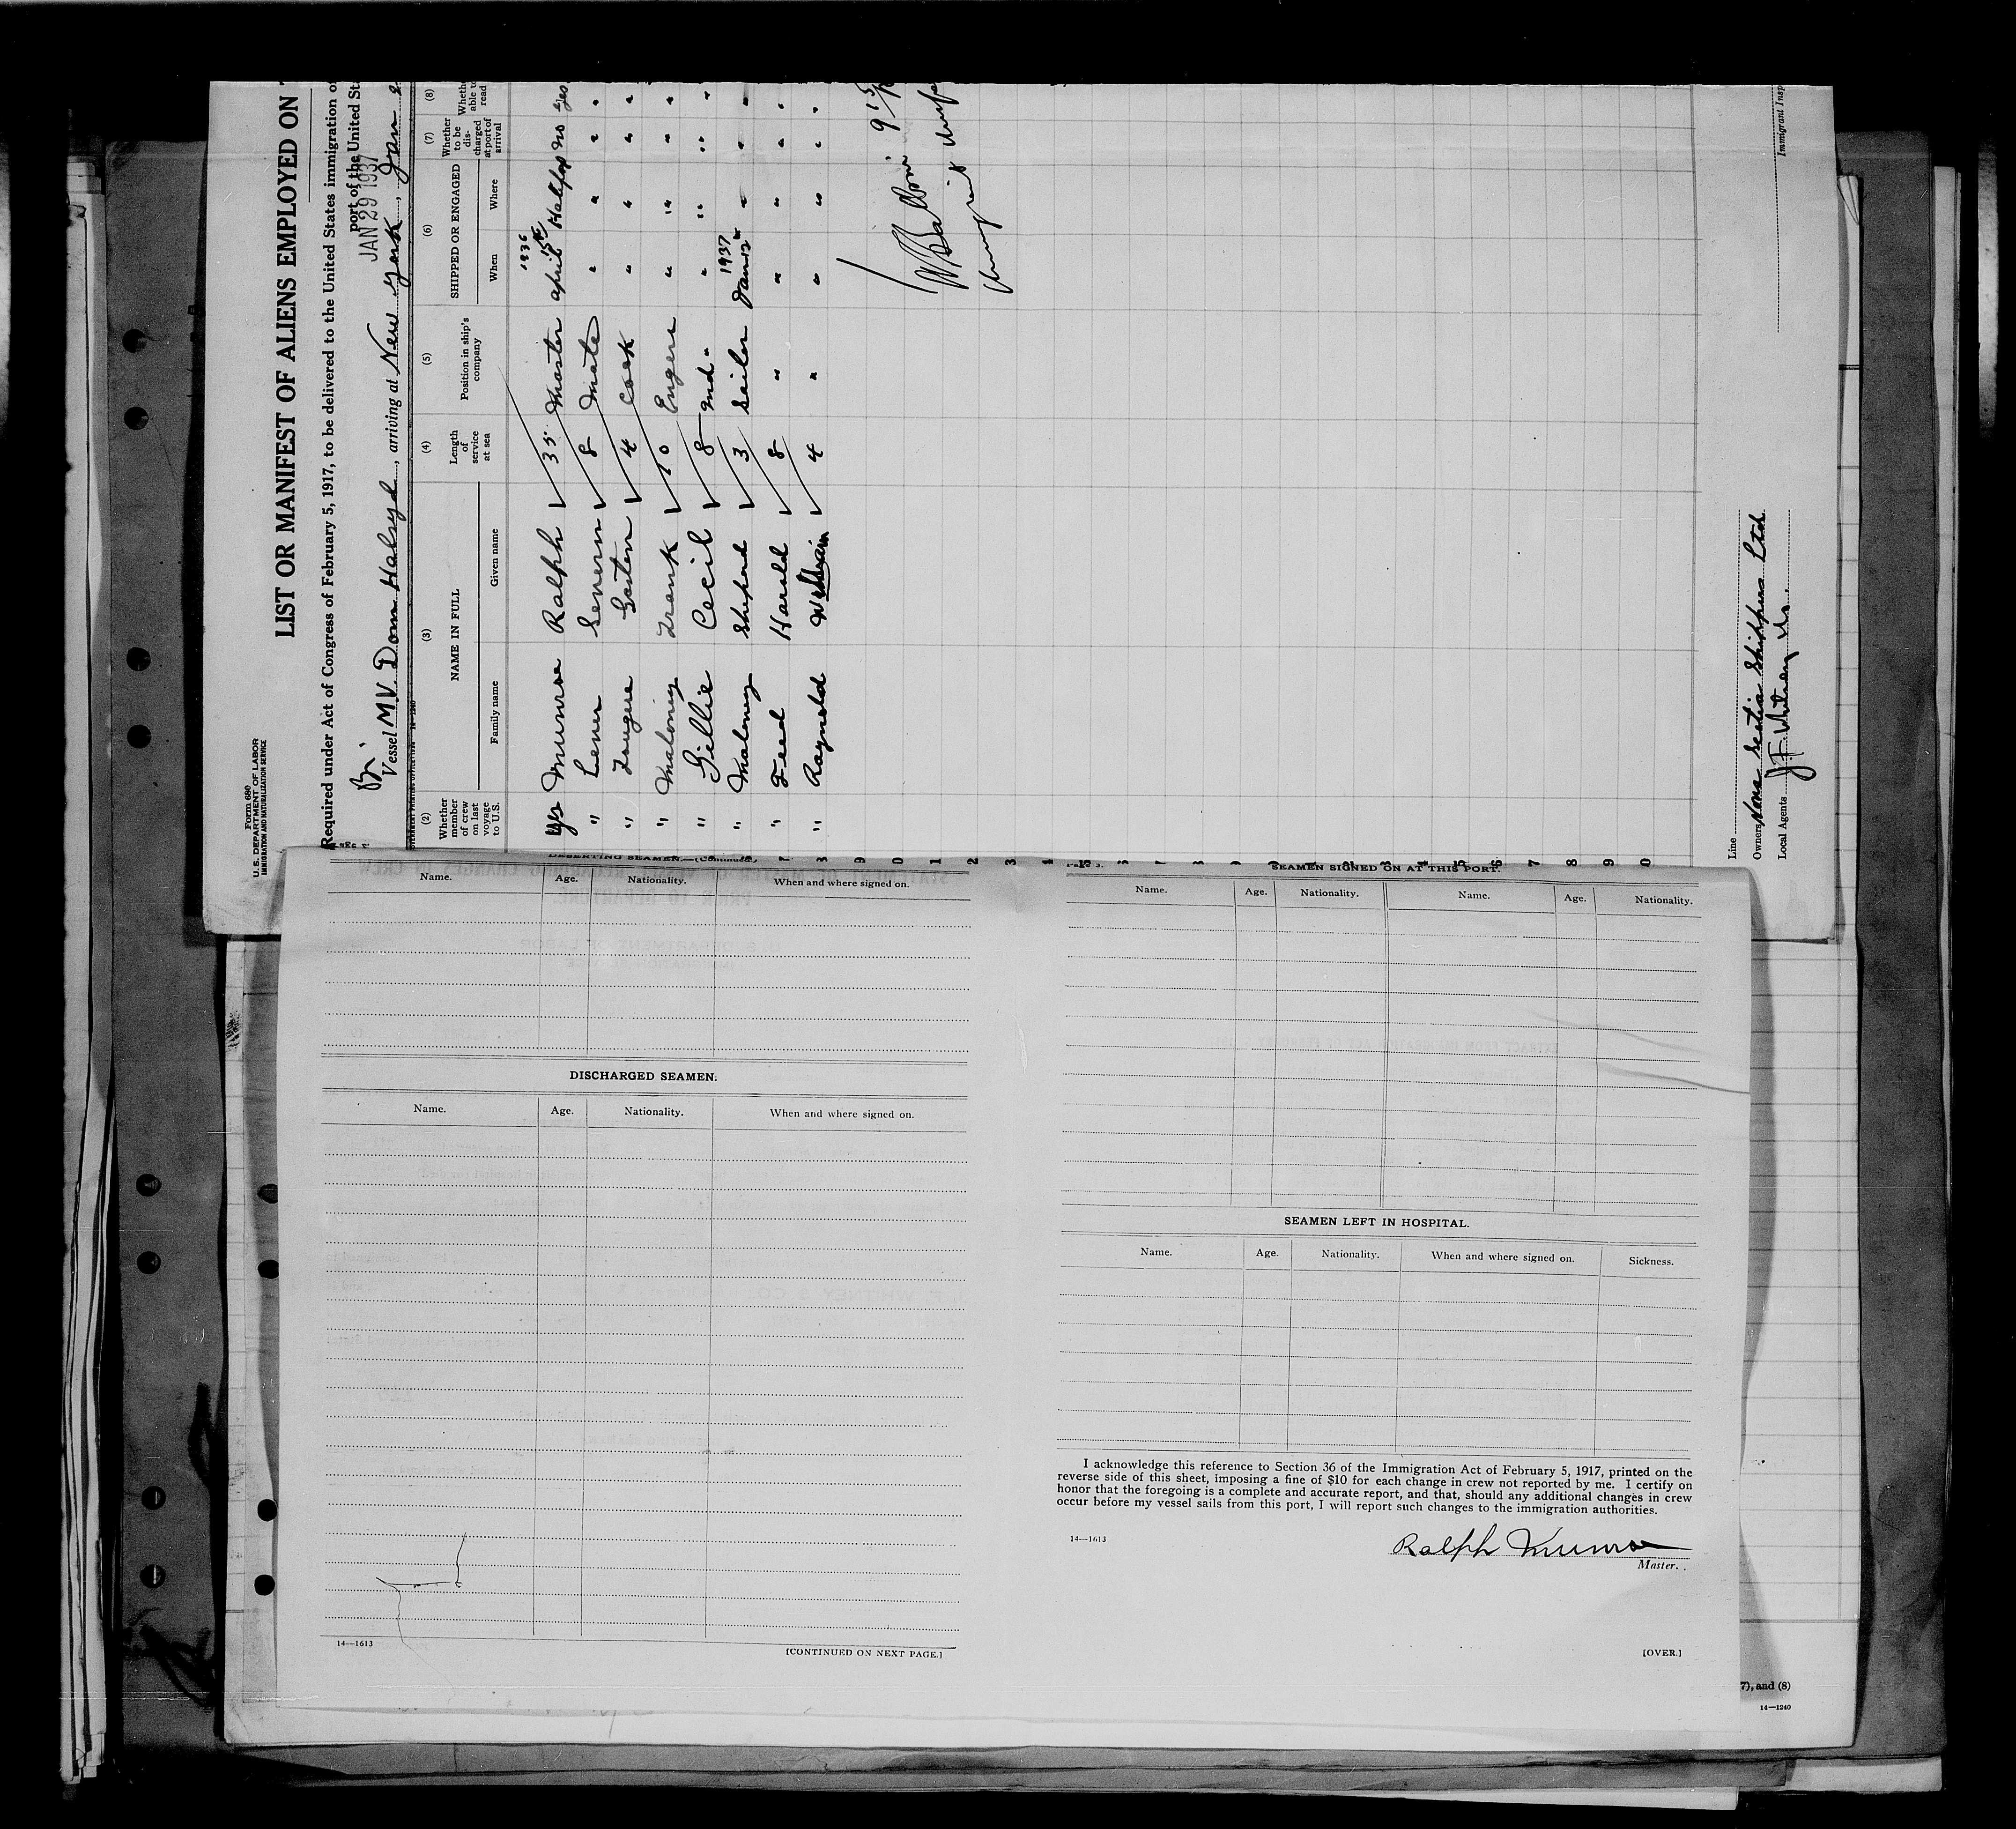 Form 680
U. S. DEPARTMENT OF LABOR
IMMIGRATION AND NATURALIZATION SERVICE
LIST OR MANIFEST OF ALIENS EMPLOYED ON
Required under Act of Congress of February 5, 1917, to be delivered to the United States immigration
port of the United St
JAN 29 1937
Br.
Vessel M.V. Dom Halsyd, arriving at New York, Jan
(2) (3) (4) (5) (6) (7) (8)
Whether member of crew on last voyage to U.S.
NAME IN FULL
Family name Given name
Length of service at sea
Position in ship's company
SHIPPED OR ENGAGED
When Where
Whether to be discharged at port of arrival
Wheth able to read
yes Munroe Ralph 35 Master 1936 April 15th Halifax no yes
" Severn 8 Mate " " " "
" Fougere Gasten 4 Cook " " " "
" Maloney Frank 10 " " " "
" Gillie Cecil 8 2nd " " " " "
" Maloney Shepherd 3 Sailor 1937 Jan 12 " " "
" Feed Harold 8 " " " " "
" Raynold William 4 " " " " "
Immigrant Insp
Line
Owners Nova Scotia Shippers Ltd
Local Agents J F Whitney
DESERTING SEAMEN.—(Continued.)
Name. Age. Nationality. When and where signed on.
DISCHARGED SEAMEN.
Name. Age. Nationality. When and where signed on.
14—1613
[CONTINUED ON NEXT PAGE.]
SEAMEN SIGNED ON AT THIS PORT.
Name. Age. Nationality. Name. Age. Nationality.
SEAMEN LEFT IN HOSPITAL.
Name. Age. Nationality. When and where signed on. Sickness.
I acknowledge this reference to Section 36 of the Immigration Act of February 5, 1917, printed on the
reverse side of this sheet, imposing a fine of $10 for each change in crew not reported by me. I certify on
honor that the foregoing is a complete and accurate report, and that, should any additional changes in crew
occur before my vessel sails from this port, I will report such changes to the immigration authorities.
14—1613
Ralph Munroe
Master.
[OVER.]
7), and (8)
14—1240